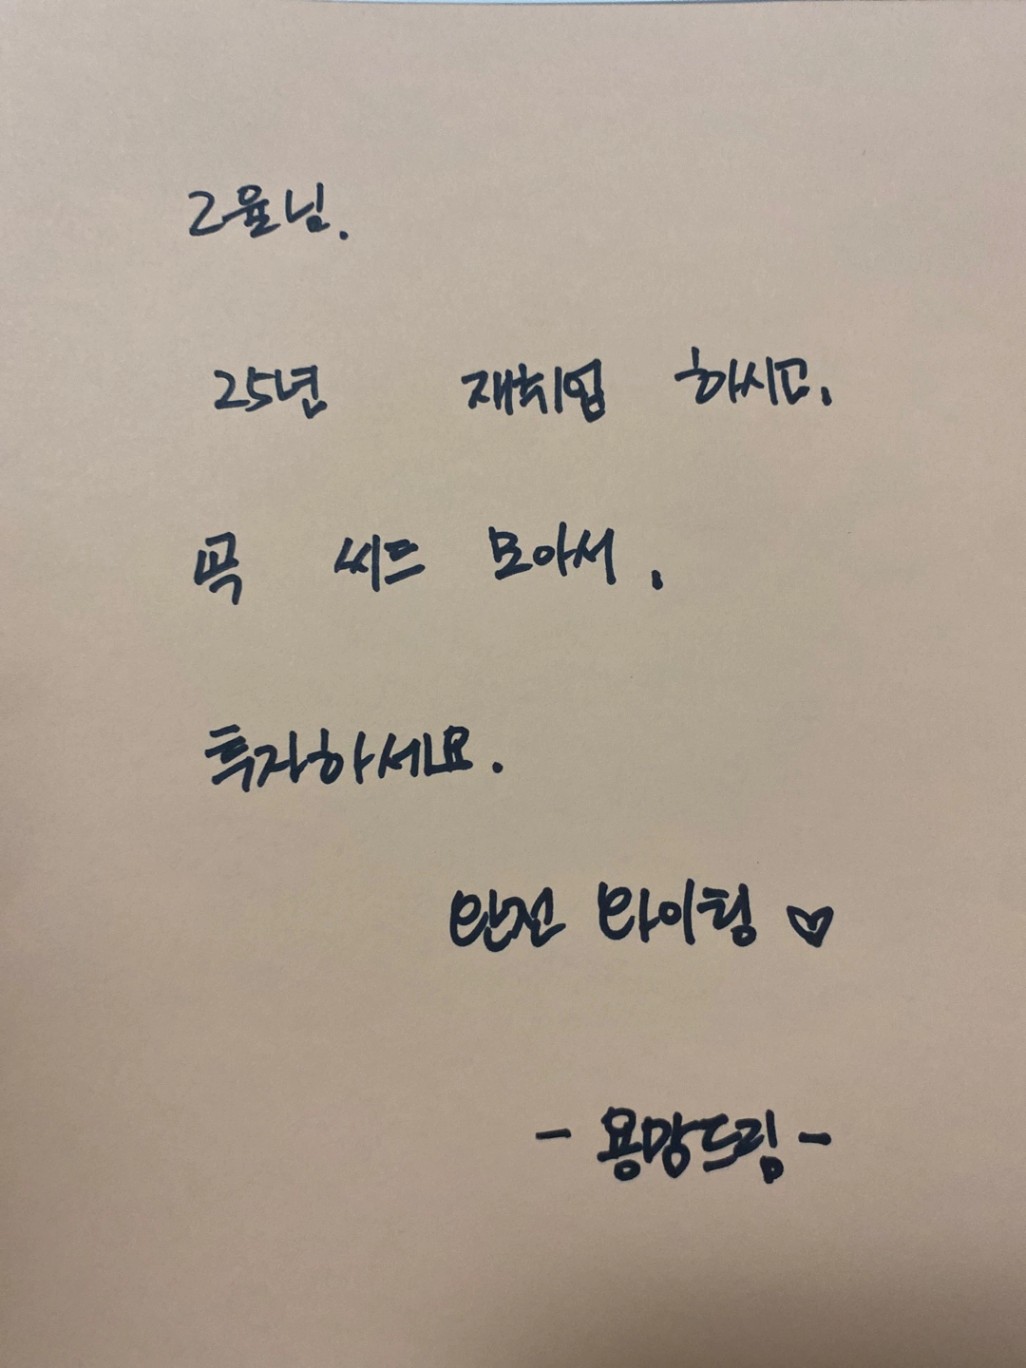 2율님.
25년 재취업 하시고.
꼭 씨드 모아서.
투자하세요.
완전 화이팅 ♡
- 용망드림 -